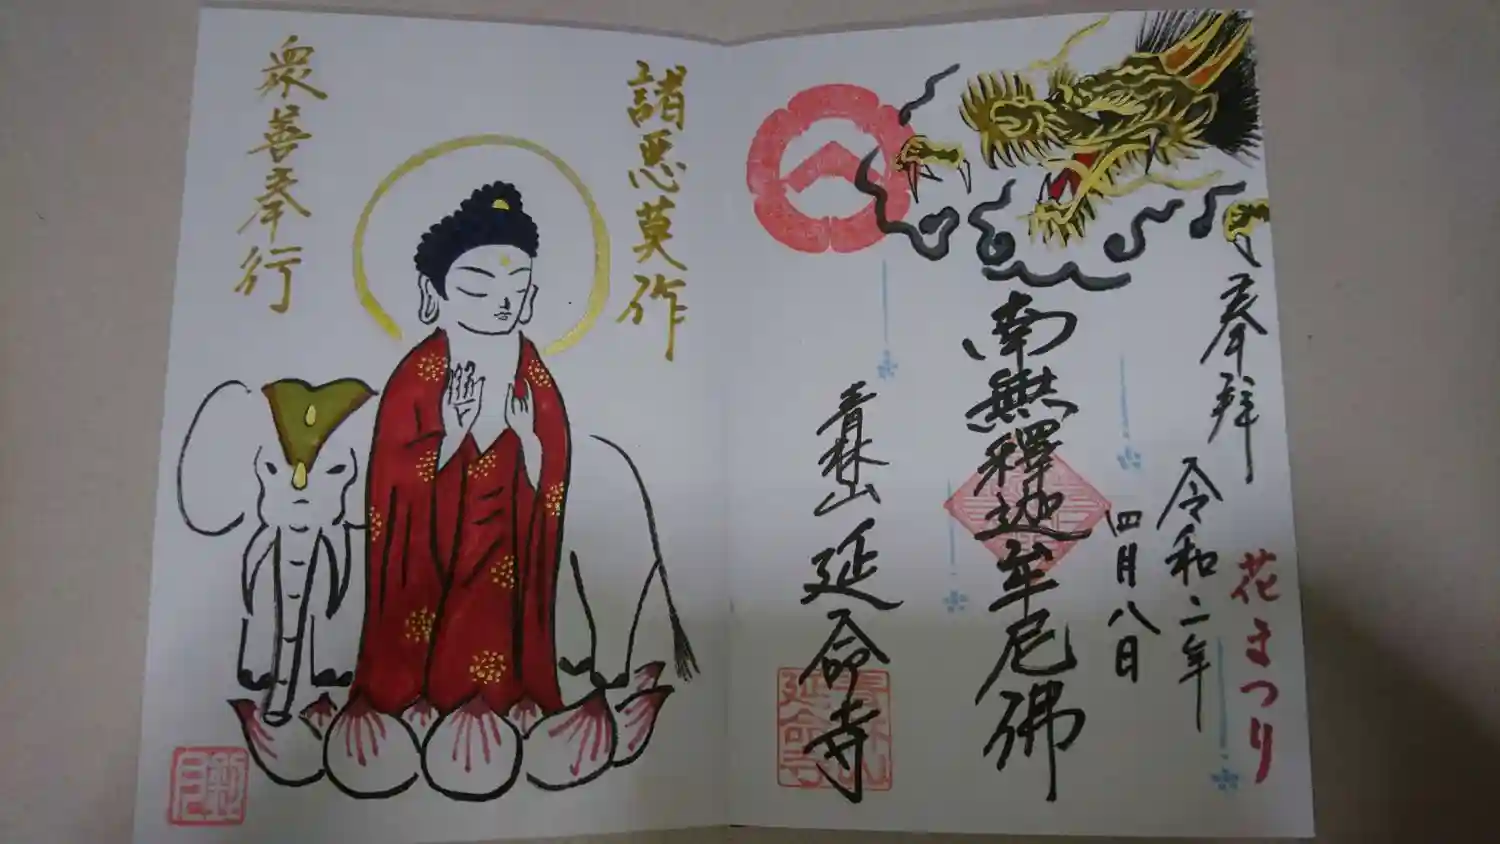 花まつり
奉拝
令和二年
四月八日
南無釋迦牟尼佛
青林山 延命寺
諸悪莫作
衆善奉行